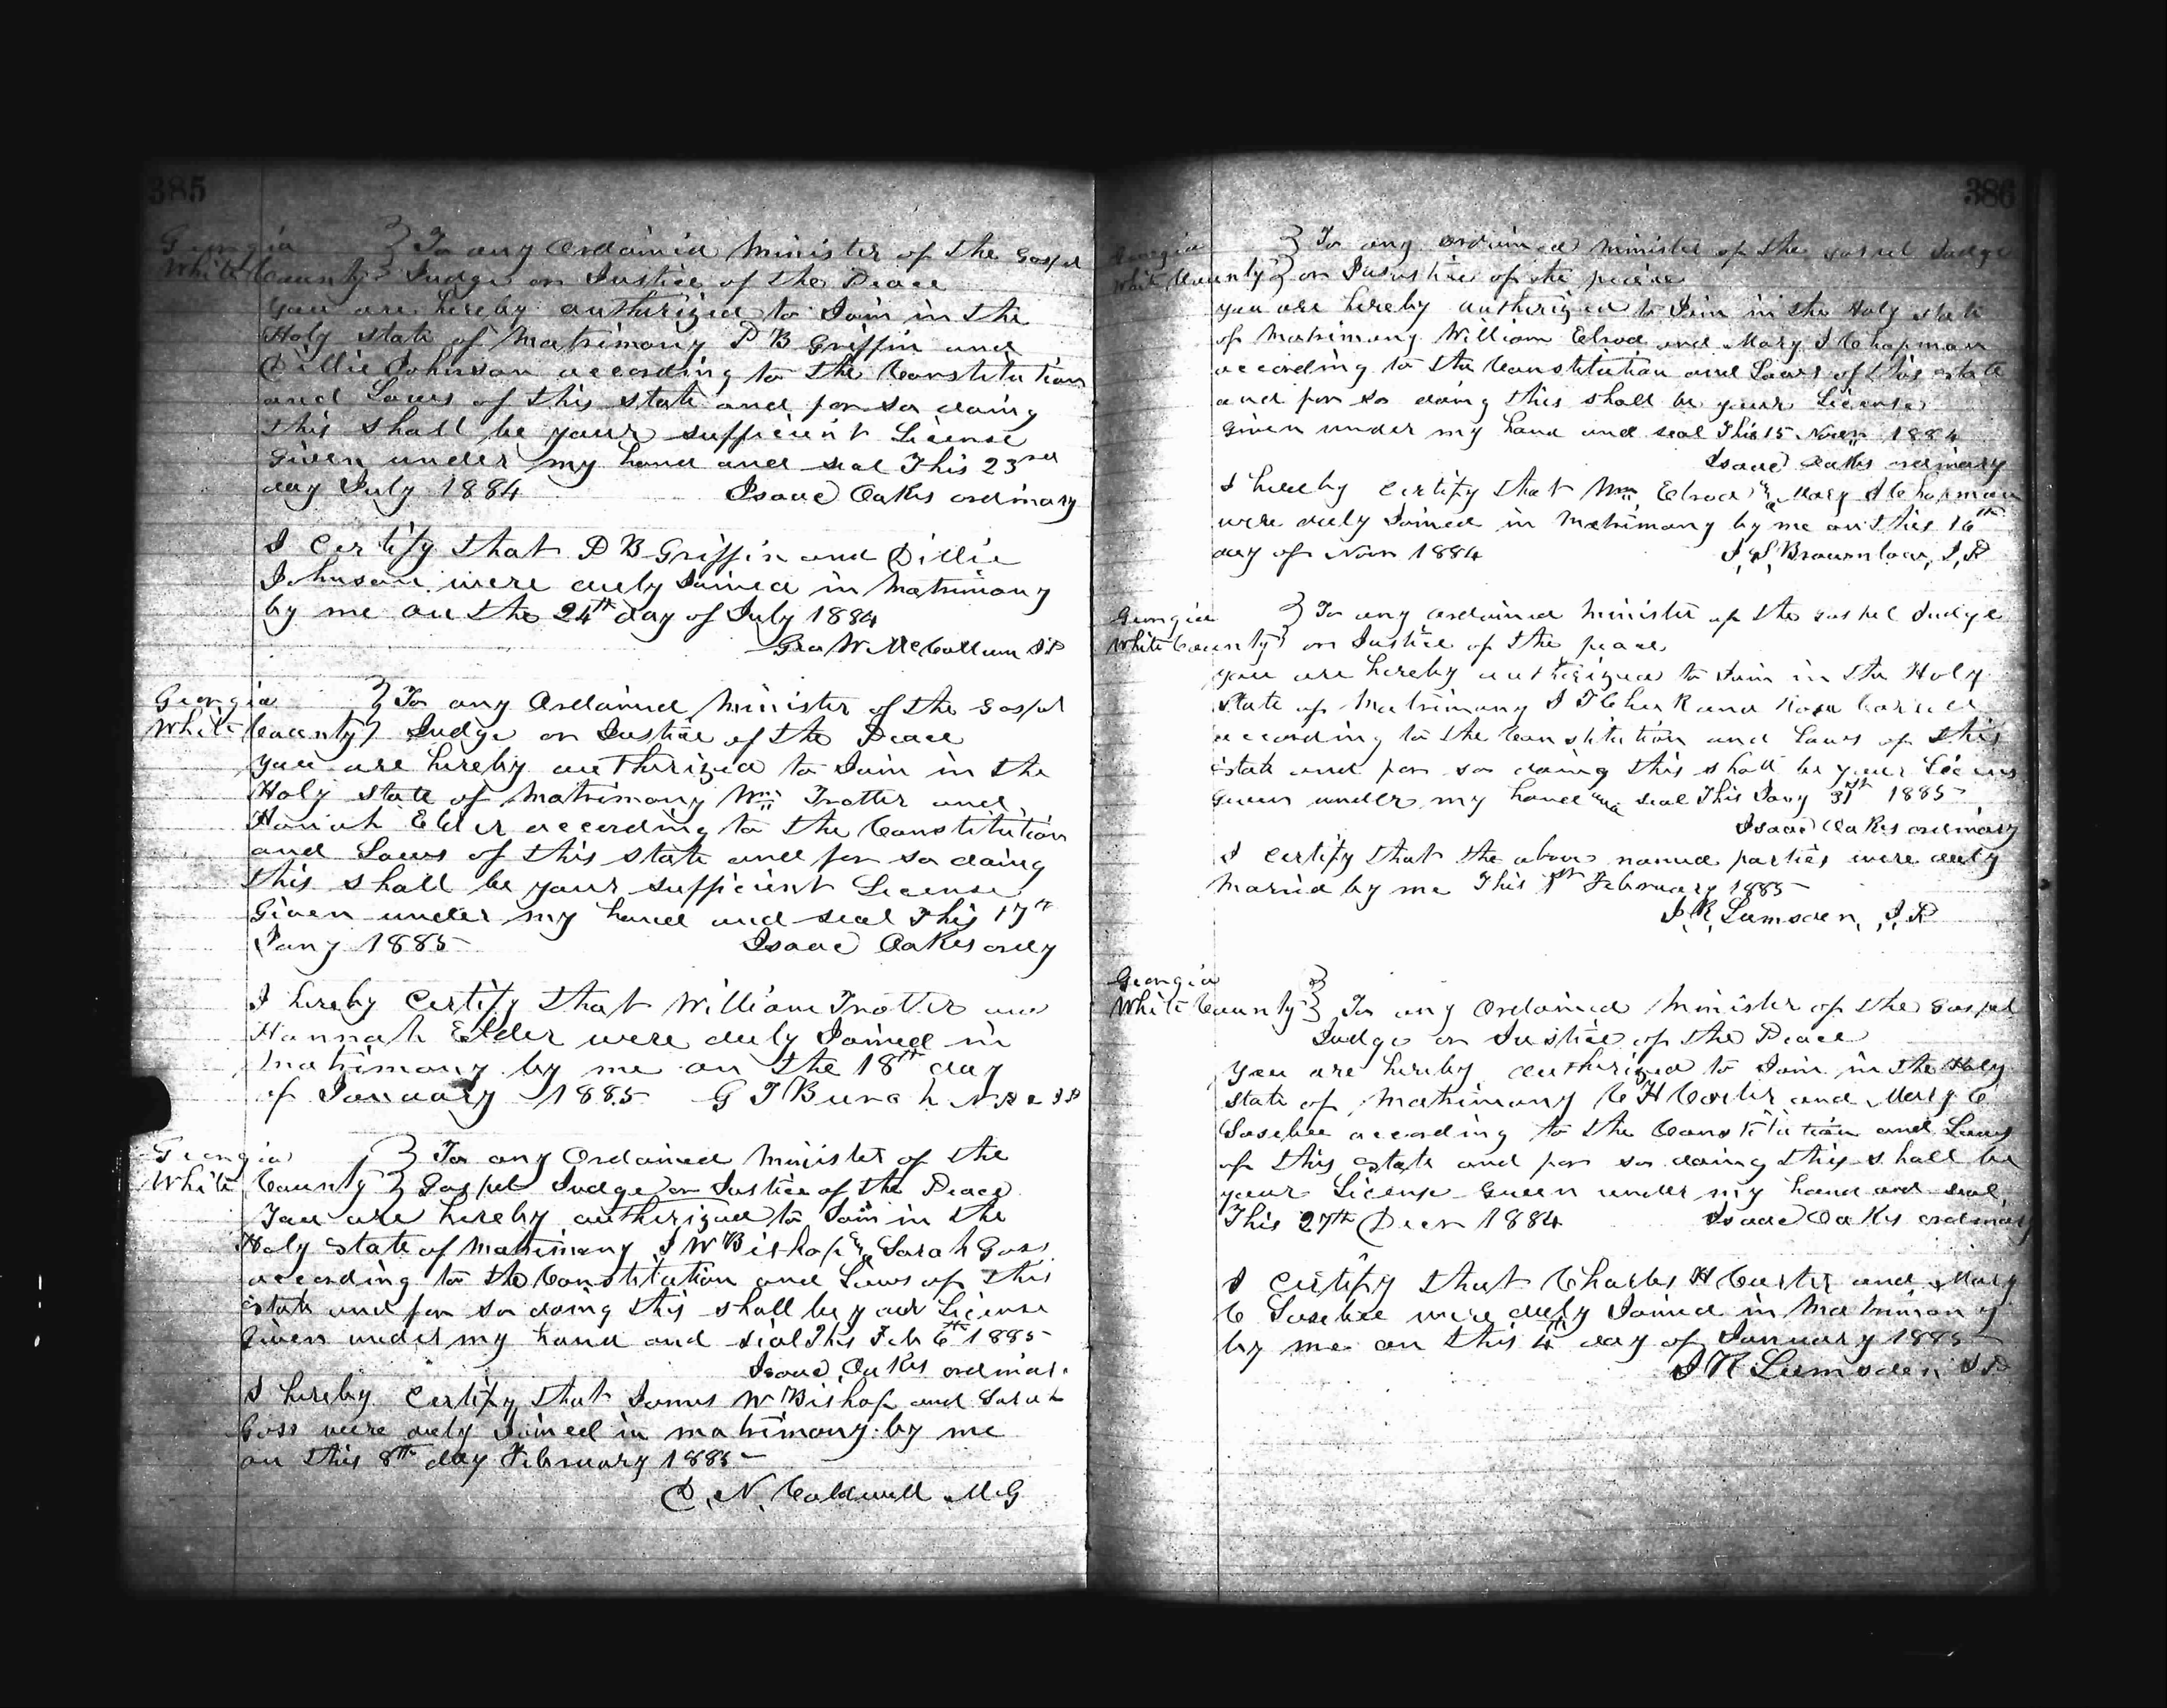 385
Georgia } To any Ordained Minister of the Gospel
White County } Judge or Justice of the Peace
You are hereby authorized to Join in the
Holy state of Matrimony P B Griffin and
Dillie Johnson according to the Constitution
and Laws of this state and for so doing
this shall be your sufficient License
Given under my hand and seal This 23rd
day July 1884 Isaac Oakes ordinary
I Certify that P B Griffin and Dillie
Johnson were duly Joined in Matrimony
by me on the 24th day of July 1884
Geo W. McCollum J P
Georgia } To any Ordained Minister of the Gospel
White County } Judge or Justice of the Peace
you are hereby authorized to Join in the
Holy state of Matrimony Wm Trotter and
Elder according to the Constitution
and Laws of this state and for so doing
this shall be your sufficient License
Given under my hand and seal This 17th
Jany 1885 Isaac Oakes ordy
I hereby Certify that William Trotter and
Hannah Elder were duly Joined in
matrimony by me on the 18th day
of January 1885 G T Burch J P
Georgia } To any Ordained Minister of the
White County } Gospel Judge or Justice of the Peace
You are hereby authorized to Join in the
Holy state of Matrimony J W Bishop & Sarah Goss
according to the Constitution and Laws of this
state and for so doing this shall be your License
Given under my hand and seal This Feb 6th 1885
Isaac Oakes
I hereby Certify that James W Bishop and Sarah
Goss were duly Joined in matrimony by me
on this 8th day February 1885
P. N. Caldwell M G
386
Georgia } To any ordained Minister of the Gospel Judge
White County } or of the peace
you are hereby authorized to Join in the Holy state
of Matrimony William Elrod and Mary J Chapman
according to the Constitution and Laws of this state
and for so doing this shall be your License
Given under my hand and seal This 15 Novr 1884
Isaac Oakes ordinary
I hereby Certify that Wm Elrod & Mary J Chapman
were duly Joined in Matrimony by me on this 16th
day of Novr 1884 J, S, Brownlow, J, P
Georgia } To any ordained Minister of the Gospel Judge
White County } or Justice of the peace
you are hereby authorized to Join in the Holy
State of Matrimony J T and Rosa
according to the Constitution and Laws of this
state and for so doing this shall be your License
Given under my hand and seal This Jany 31st 1885
Isaac Oakes ordinary
I Certify that the above named parties were duly
Maried by me This 1st February 1885
J, R, Lumsden, J, P
Georgia }
White County } To any Ordained Minister of the Gospel
Judge or Justice of the Peace
You are hereby authorized to Join in the Holy
state of Matrimony C H Carter and Mary C
Sosebee according to the Constitution and Laws
of this state and for so doing this shall be
your License Given under my hand and seal
This 27th Decr 1884 Isaac Oakes ordinary
I Certify that Charles H Carter and Mary
C Sosebee were duly Joined in Matrimony
by me on this 4th day of January 1885
J R Lumsden J P